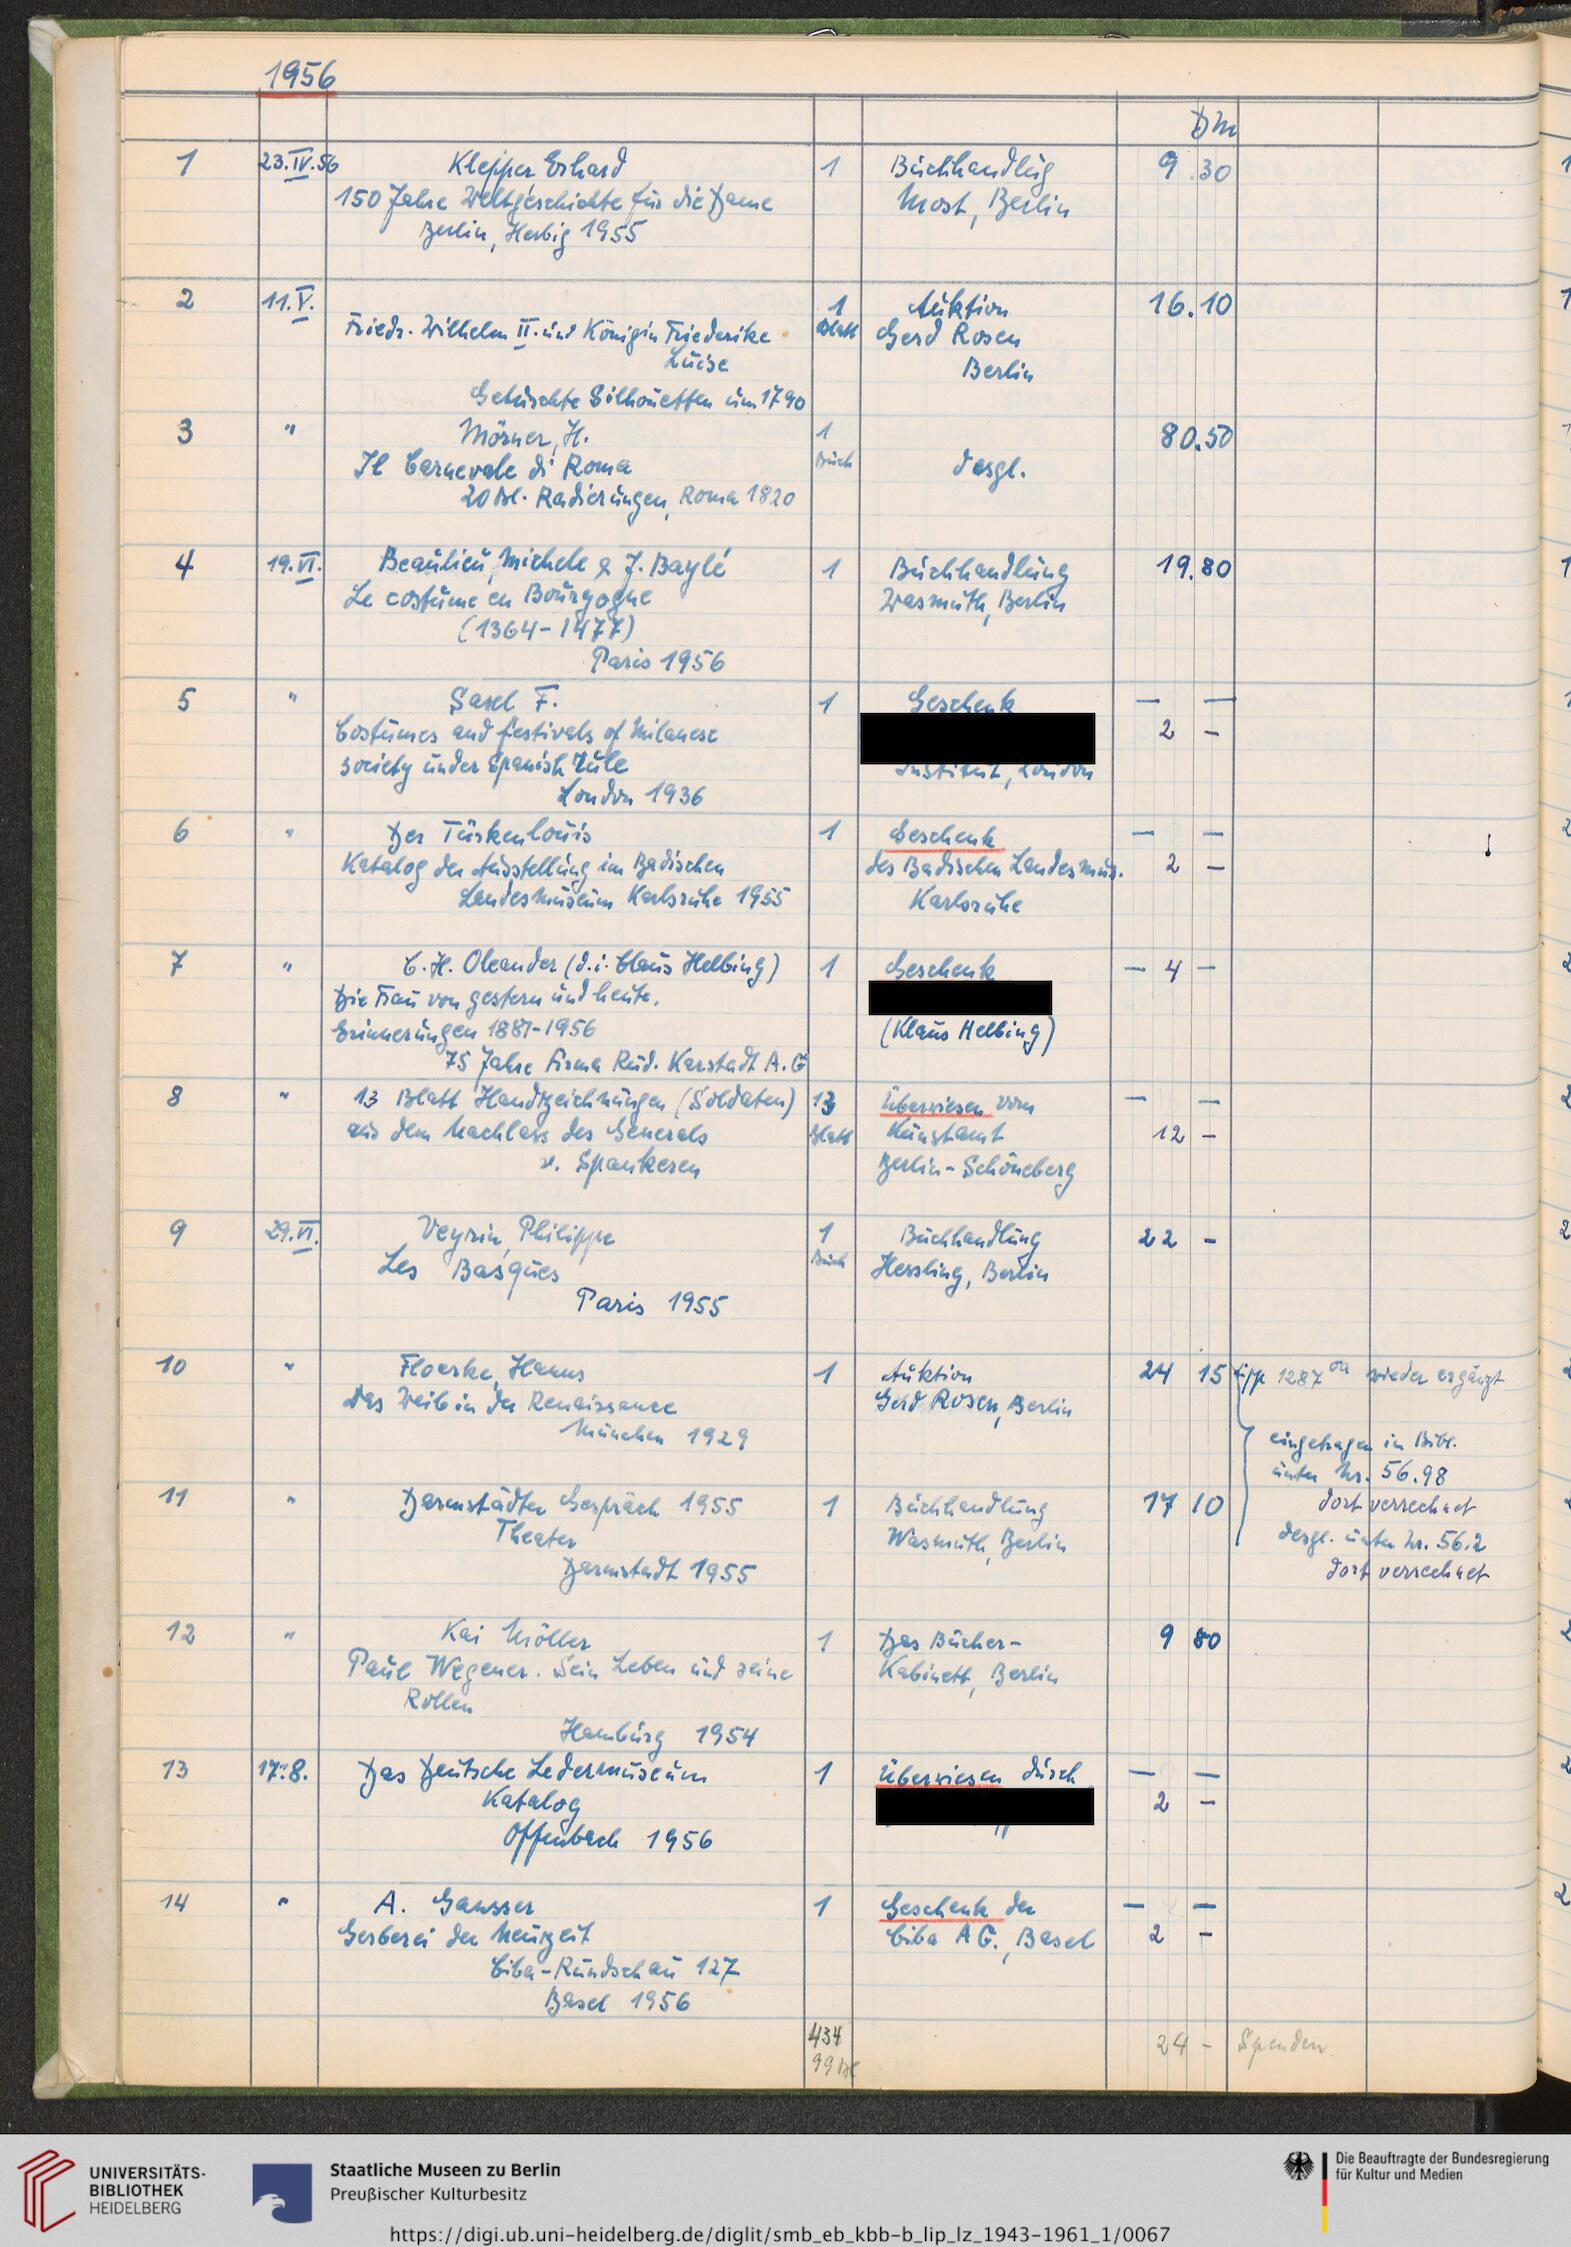 1956
DM
1 23.IV.56 Klepper, Erhard 1 Buchhandlg 9.30
150 Jahre Weltgeschichte für die Dame Most, Berlin
Berlin, Herbig 1955
2 11.V. 1 Auktion 16.10
Friedr. Wilhelm II. und Königin Friederike Blatt Gerd Rosen
Luise Berlin
Getuschte Silhouetten um 1790
3 " Mörner, H. 1 80.50
Il Carnevale di Roma Buch desgl.
20 Bl. Radierungen, Roma 1820
4 19.VI. Beaulieu, Michele & J. Baylé 1 Buchhandlung 19.80
Le costume en Bourgogne Wasmuth, Berlin
(1364-1477)
Paris 1956
5 " Saxl F. 1 Geschenk — —
Costumes and festivals of Milanese 2 -
society under Spanish rule Institut, London
London 1936
6 " Der Türkenlouis 1 Geschenk — —
Katalog der Ausstellung im Badischen des Badischen Landesmus. 2 —
Landesmuseum Karlsruhe 1955 Karlsruhe
7 " C. H. Oleander (d.i. Claus Helbing) 1 Geschenk — 4 —
Die Frau von gestern und heute.
Erinnerungen 1881-1956 (Klaus Helbing)
75 Jahre Firma Rud. Karstadt A.G
8 " 13 Blatt Handzeichnungen (Soldaten) 13 Überwiesen vom — —
aus dem Nachlass des Generals Blatt Kunstamt 12 -
v. Spankeren Berlin-Schöneberg
9 29.VI. Veyrin, Philippe 1 Buchhandlung 22 -
Les Basques Buch Hessling, Berlin
Paris 1955
10 " Floerke, Hanns 1 Auktion 24 15 Lipp 1287 wieder ergänzt
Das Weib in der Renaissance Gerd Rosen, Berlin
München 1929
eingetragen in Bibl.
unter Nr. 56.98
11 " Darmstädter Gespräch 1955 1 Buchhandlung 17 10 dort verrechnet
Theater Wasmuth, Berlin desgl. unter Nr. 56.2
Darmstadt 1955 dort verrechnet
12 " Kai Möller 1 Das Bücher- 9 80
Paul Wegener. Sein Leben und seine Kabinett, Berlin
Rollen
Hamburg 1954
13 17.8. Das Deutsche Ledermuseum 1 Überwiesen durch — —
Katalog 2 —
Offenbach 1956
14 " A. Gansser 1 Geschenk der — —
Gerberei der Neuzeit Ciba A G., Basel 2 -
Ciba-Rundschau 127
Basel 1956
434 24 - Spenden
99 Bl
UNIVERSITÄTS-
BIBLIOTHEK
HEIDELBERG
Staatliche Museen zu Berlin
Preußischer Kulturbesitz
Die Beauftragte der Bundesregierung
für Kultur und Medien
https://digi.ub.uni-heidelberg.de/diglit/smb_eb_kbb-b_lip_lz_1943-1961_1/0067